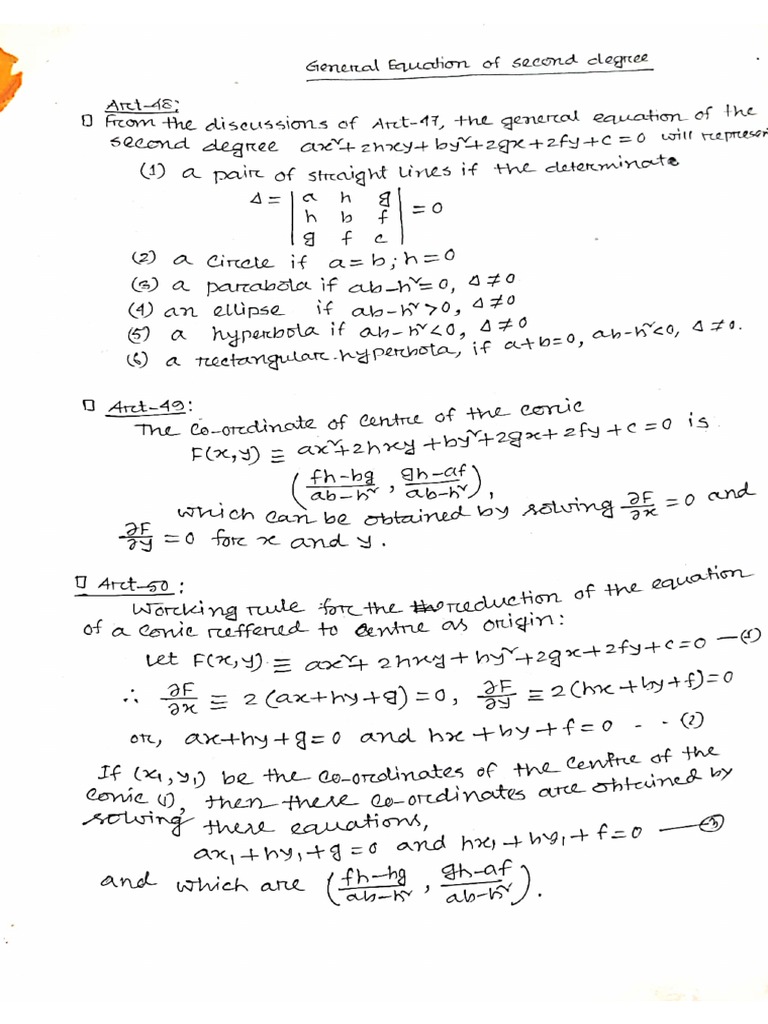 General Equation of second degree
Art-48:
▯ From the discussions of Art-47, the general equation of the
second degree ax²+2hxy+by²+2gx+2fy+c=0 will represen
(1) a pair of straight lines if the determinate
Δ = | a h g |
| h b f | = 0
| g f c |
(2) a circle if a=b; h=0
(3) a parabola if ab-h²=0, Δ≠0
(4) an ellipse if ab-h²>0, Δ≠0
(5) a hyperbola if ab-h²<0, Δ≠0
(6) a rectangular hyperbola, if a+b=0, ab-h²<0, Δ≠0.
▯ Art-49:
The co-ordinate of centre of the conic
F(x,y) ≡ ax²+2hxy+by²+2gx+2fy+c=0 is
((fh-bg)/(ab-h²), (gh-af)/(ab-h²)),
which can be obtained by solving ∂F/∂x = 0 and
∂F/∂y = 0 for x and y.
▯ Art-50:
Working rule for the reduction of the equation
of a conic reffered to centre as origin:
Let F(x,y) ≡ ax²+2hxy+by²+2gx+2fy+c=0 —(1)
∴ ∂F/∂x ≡ 2(ax+hy+g)=0, ∂F/∂y ≡ 2(hx+by+f)=0
or, ax+hy+g=0 and hx+by+f=0 - - (2)
If (x₁,y₁) be the co-ordinates of the centre of the
conic (1), then these co-ordinates are obtained by
solving these equations,
ax₁+hy₁+g=0 and hx₁+by₁+f=0 —(3)
and which are ((fh-bg)/(ab-h²), (gh-af)/(ab-h²)).